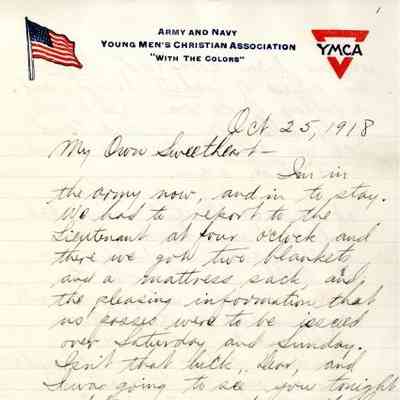 1
ARMY AND NAVY
YOUNG MEN'S CHRISTIAN ASSOCIATION
"WITH THE COLORS"
YMCA
Oct 25, 1918
My Own Sweetheart—
I'm in
the army now, and in to stay.
We had to report to the
Lieutenant at four oclock and
there we got two blankets
and a mattress sack, and
the pleasing information that
no passes were to be issued
over Saturday and Sunday.
Isn't that luck, Dear, and
I was going to see you tonight